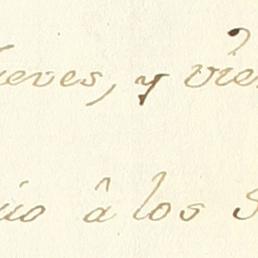 ieves, y vie
uo â los S